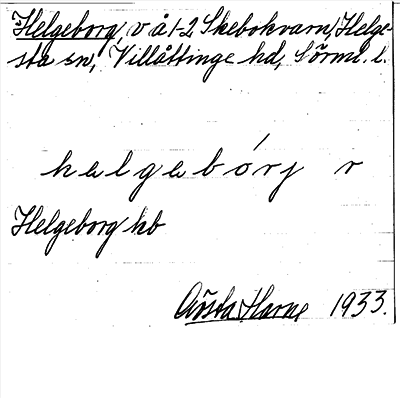 Helgeborg, v å 1-2 Skebokvarn, Helge-
sta sn, Villåttinge hd, Sörml. l.
helgebórj r
Helgeborg hb
Gösta Harne 1933.